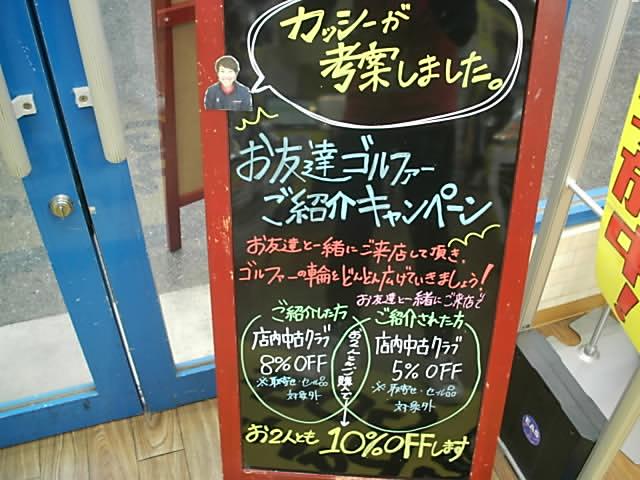 カッシーが
考案しました。
お友達ゴルファー
ご紹介キャンペーン
お友達と一緒にご来店して頂き、
ゴルファーの輪をどんどん広げていきましょう!
お友達と一緒にご来店で
ご紹介した方
店内中古クラブ
8%OFF
※取寄せ・セール品
対象外
お2人ともご購入で
ご紹介された方
店内中古クラブ
5%OFF
※取寄せ・セール品
対象外
お2人とも10%OFFします
中!